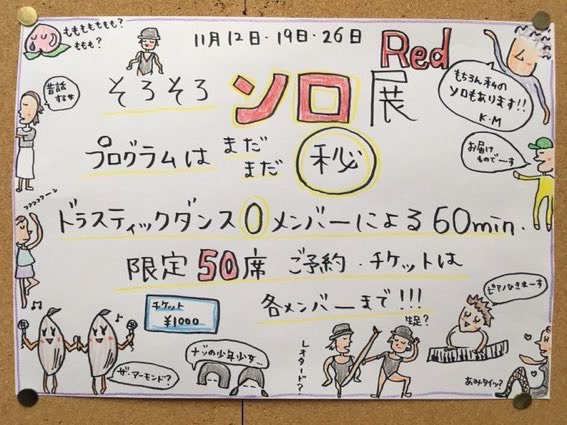 ももももちもも?
ももも?
11月12日・19日・26日
Red
そろそろ ソロ展
昔話
するす
もちろん私の
ソロもあります!!
K・M
プログラムは まだ
まだ
秘
お届け
ものでーす
ドラスティックダンス0メンバーによる60min.
ララララララーン
限定50席 ご予約・チケットは
各メンバーまで!!!
チケット
¥1000
ザ・アーモンド?
ナゾの少年少女…
レオタード?
生足?
ピアノひきまーす
あみタイツ?